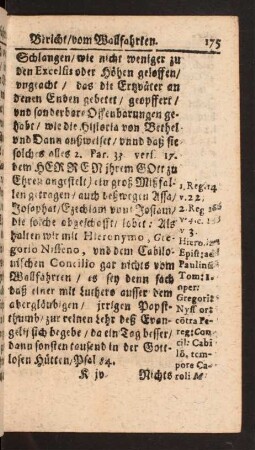 Bericht/vom Wallfahrten. 175
Schlangen/ wie nicht weniger zu
den Excelsis oder Höhen geloffen/
vngeacht / das die Ertzväter an
denen Enden gebetet / geopffert /
vnd sonderbare Offenbarungen ge-
habt / wie die Historia von Bethel
vnd Dann außweiset / vnnd daß sie
solches alles 2. Par. 33 vers. 17.
dem HERREN jhrem GOtt zu
Ehren angestelt) ein groß Mißfal-
len getragen / auch deßwegen Assa/
Josaphat/ Ezechiam vnd Josiam/
die solche abgeschafft/ lobet: Als
halten wir mit Hieronymo, Gre-
gorio Nisseno, vnd dem Cabilo-
nischen Concilio gar nichts vom
Wallfahrten / es sey denn sach
daß einer mit Luthero ausser dem
abergläubigen / jrrigen Papst-
thumb/ zur reinen Lehr deß Evan-
gelij sich begebe / da ein Tag besser/
dann sonsten tausend in der Gott-
losen Hütten/Psal 84.
1. Reg. 14
v. 22.
2. Reg 18
v. 4. c.
v 3.
Hieron.in
Epist: ad
Paulinũ
Tom: 1.
oper:
Gregori⁹
Nyss or:
cõtra Pe-
reg: Con-
cil: Cabi
lõ, tem-
pore Ca-
roli M
K iv Nichts